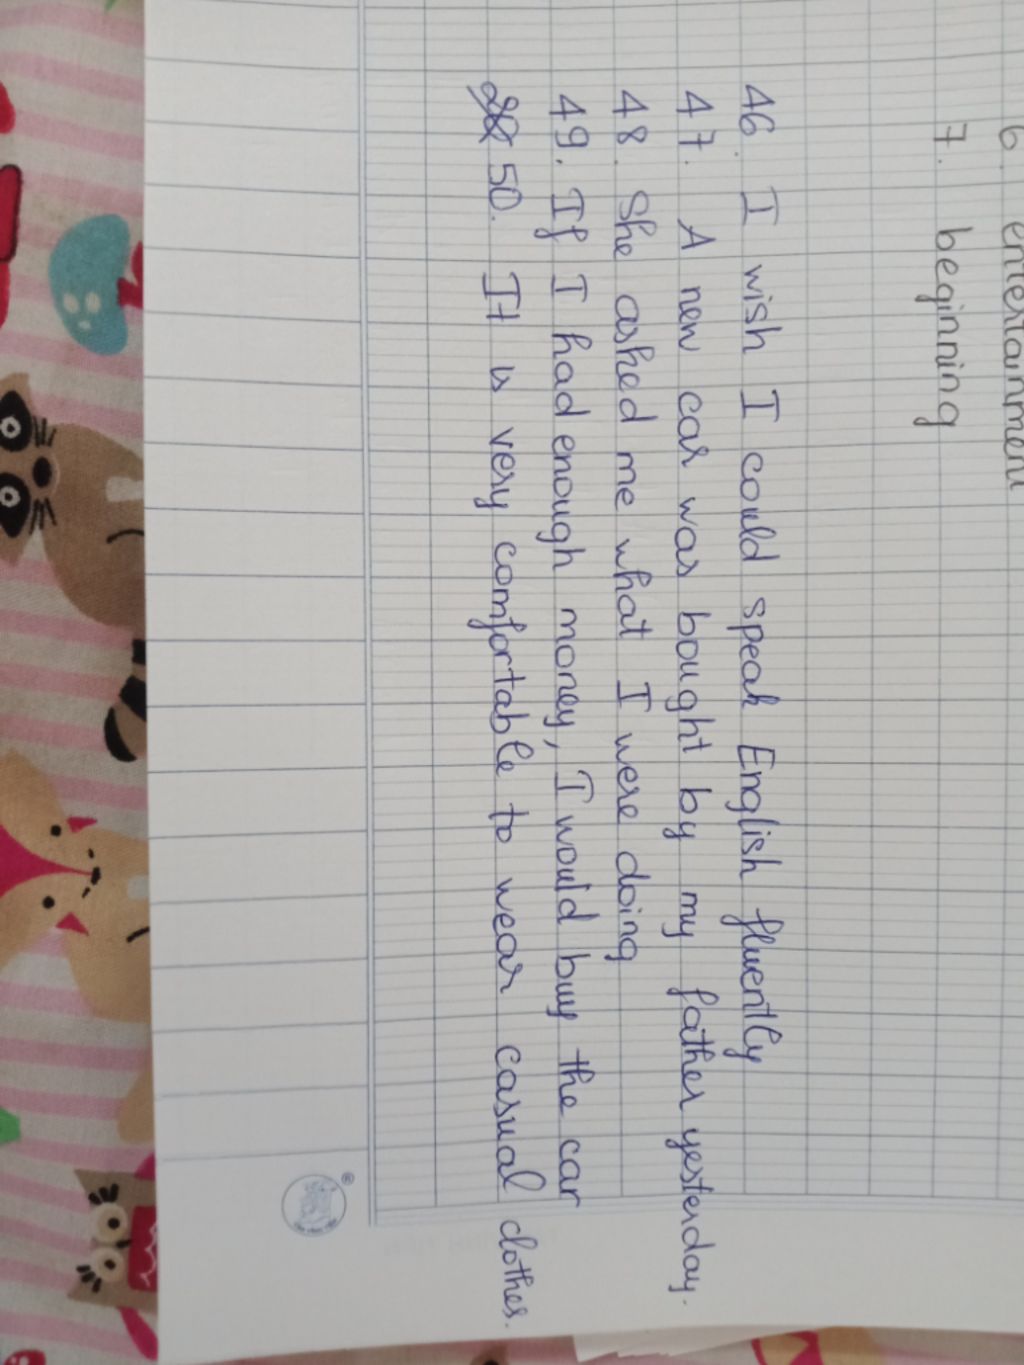 6. entertainment
7. beginning
46. I wish I could speak English fluently
47. A new car was bought by my father yesterday.
48. She asked me what I were doing
49. If I had enough money, I would buy the car
50. It is very comfortable to wear casual clothes.